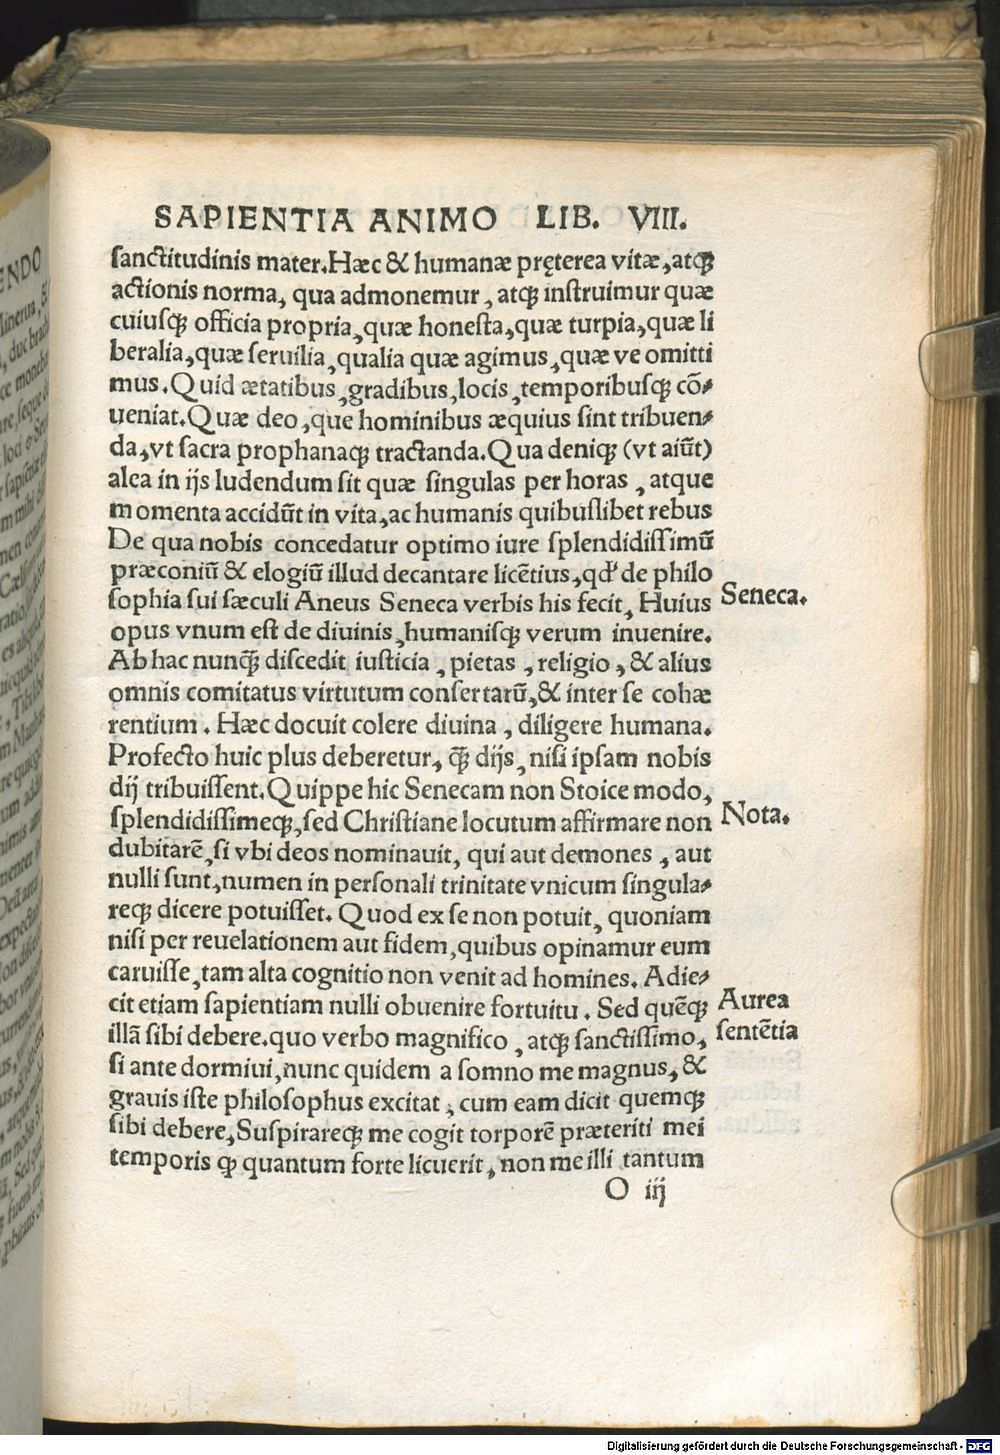 SAPIENTIA ANIMO LIB. VIII.
ſanctitudinis mater.Hæc & humanæ pręterea vitæ,atqꝫ
actionis norma, qua admonemur, atqꝫ inſtruimur quæ
cuiuſqꝫ officia propria,quæ honeſta,quæ turpia,quæ li
beralia,quæ ſeruilia,qualia quæ agimus,quæ ve omitti
mus.Quid ætatibus,gradibus,locis,temporibuſqꝫ cō⸗
ueniat.Quæ deo,que hominibus æquius ſint tribuen⸗
da,vt ſacra prophanaqꝫ tractanda.Qua deniqꝫ (vt aiūt)
alea in ijs ludendum ſit quæ ſingulas per horas, atque
momenta accidūt in vita,ac humanis quibuſlibet rebus
De qua nobis concedatur optimo iure ſplendidiſſimū
præconiū & elogiū illud decantare licētius,qď de philo
ſophia ſui ſæculi Aneus Seneca verbis his fecit, Huius
Seneca.
opus vnum eſt de diuinis,humaniſqꝫ verum inuenire.
Ab hac nunq̄ꝫ diſcedit iuſticia, pietas, religio, & alius
omnis comitatus virtutum conſertarū,& inter ſe cohæ
rentium. Hæc docuit colere diuina, diligere humana.
Profecto huic plus deberetur, q̄ꝫ dijs,niſi ipſam nobis
dij tribuiſſent.Quippe hic Senecam non Stoice modo,
ſplendidiſſimeqꝫ,ſed Chriſtiane locutum affirmare non
Nota.
dubitarē,ſi vbi deos nominauit, qui aut demones, aut
nulli ſunt,numen in perſonali trinitate vnicum ſingula⸗
reqꝫ dicere potuiſſet. Quod ex ſe non potuit, quoniam
niſi per reuelationem aut fidem,quibus opinamur eum
caruiſſe,tam alta cognitio non venit ad homines. Adie⸗
cit etiam ſapientiam nulli obuenire fortuitu. Sed quēqꝫ
Aurea
illā ſibi debere.quo verbo magnifico, atqꝫ ſanctiſſimo,
ſentētia
ſi ante dormiui,nunc quidem a ſomno me magnus, &
grauis iſte philoſophus excitat, cum eam dicit quemqꝫ
ſibi debere,Suſpirareqꝫ me cogit torporē præteriti mei
temporis qꝫ quantum forte licuerit, non me illi tantum
O iij
Digitalisierung gefördert durch die Deutsche Forschungsgemeinschaft - DFG